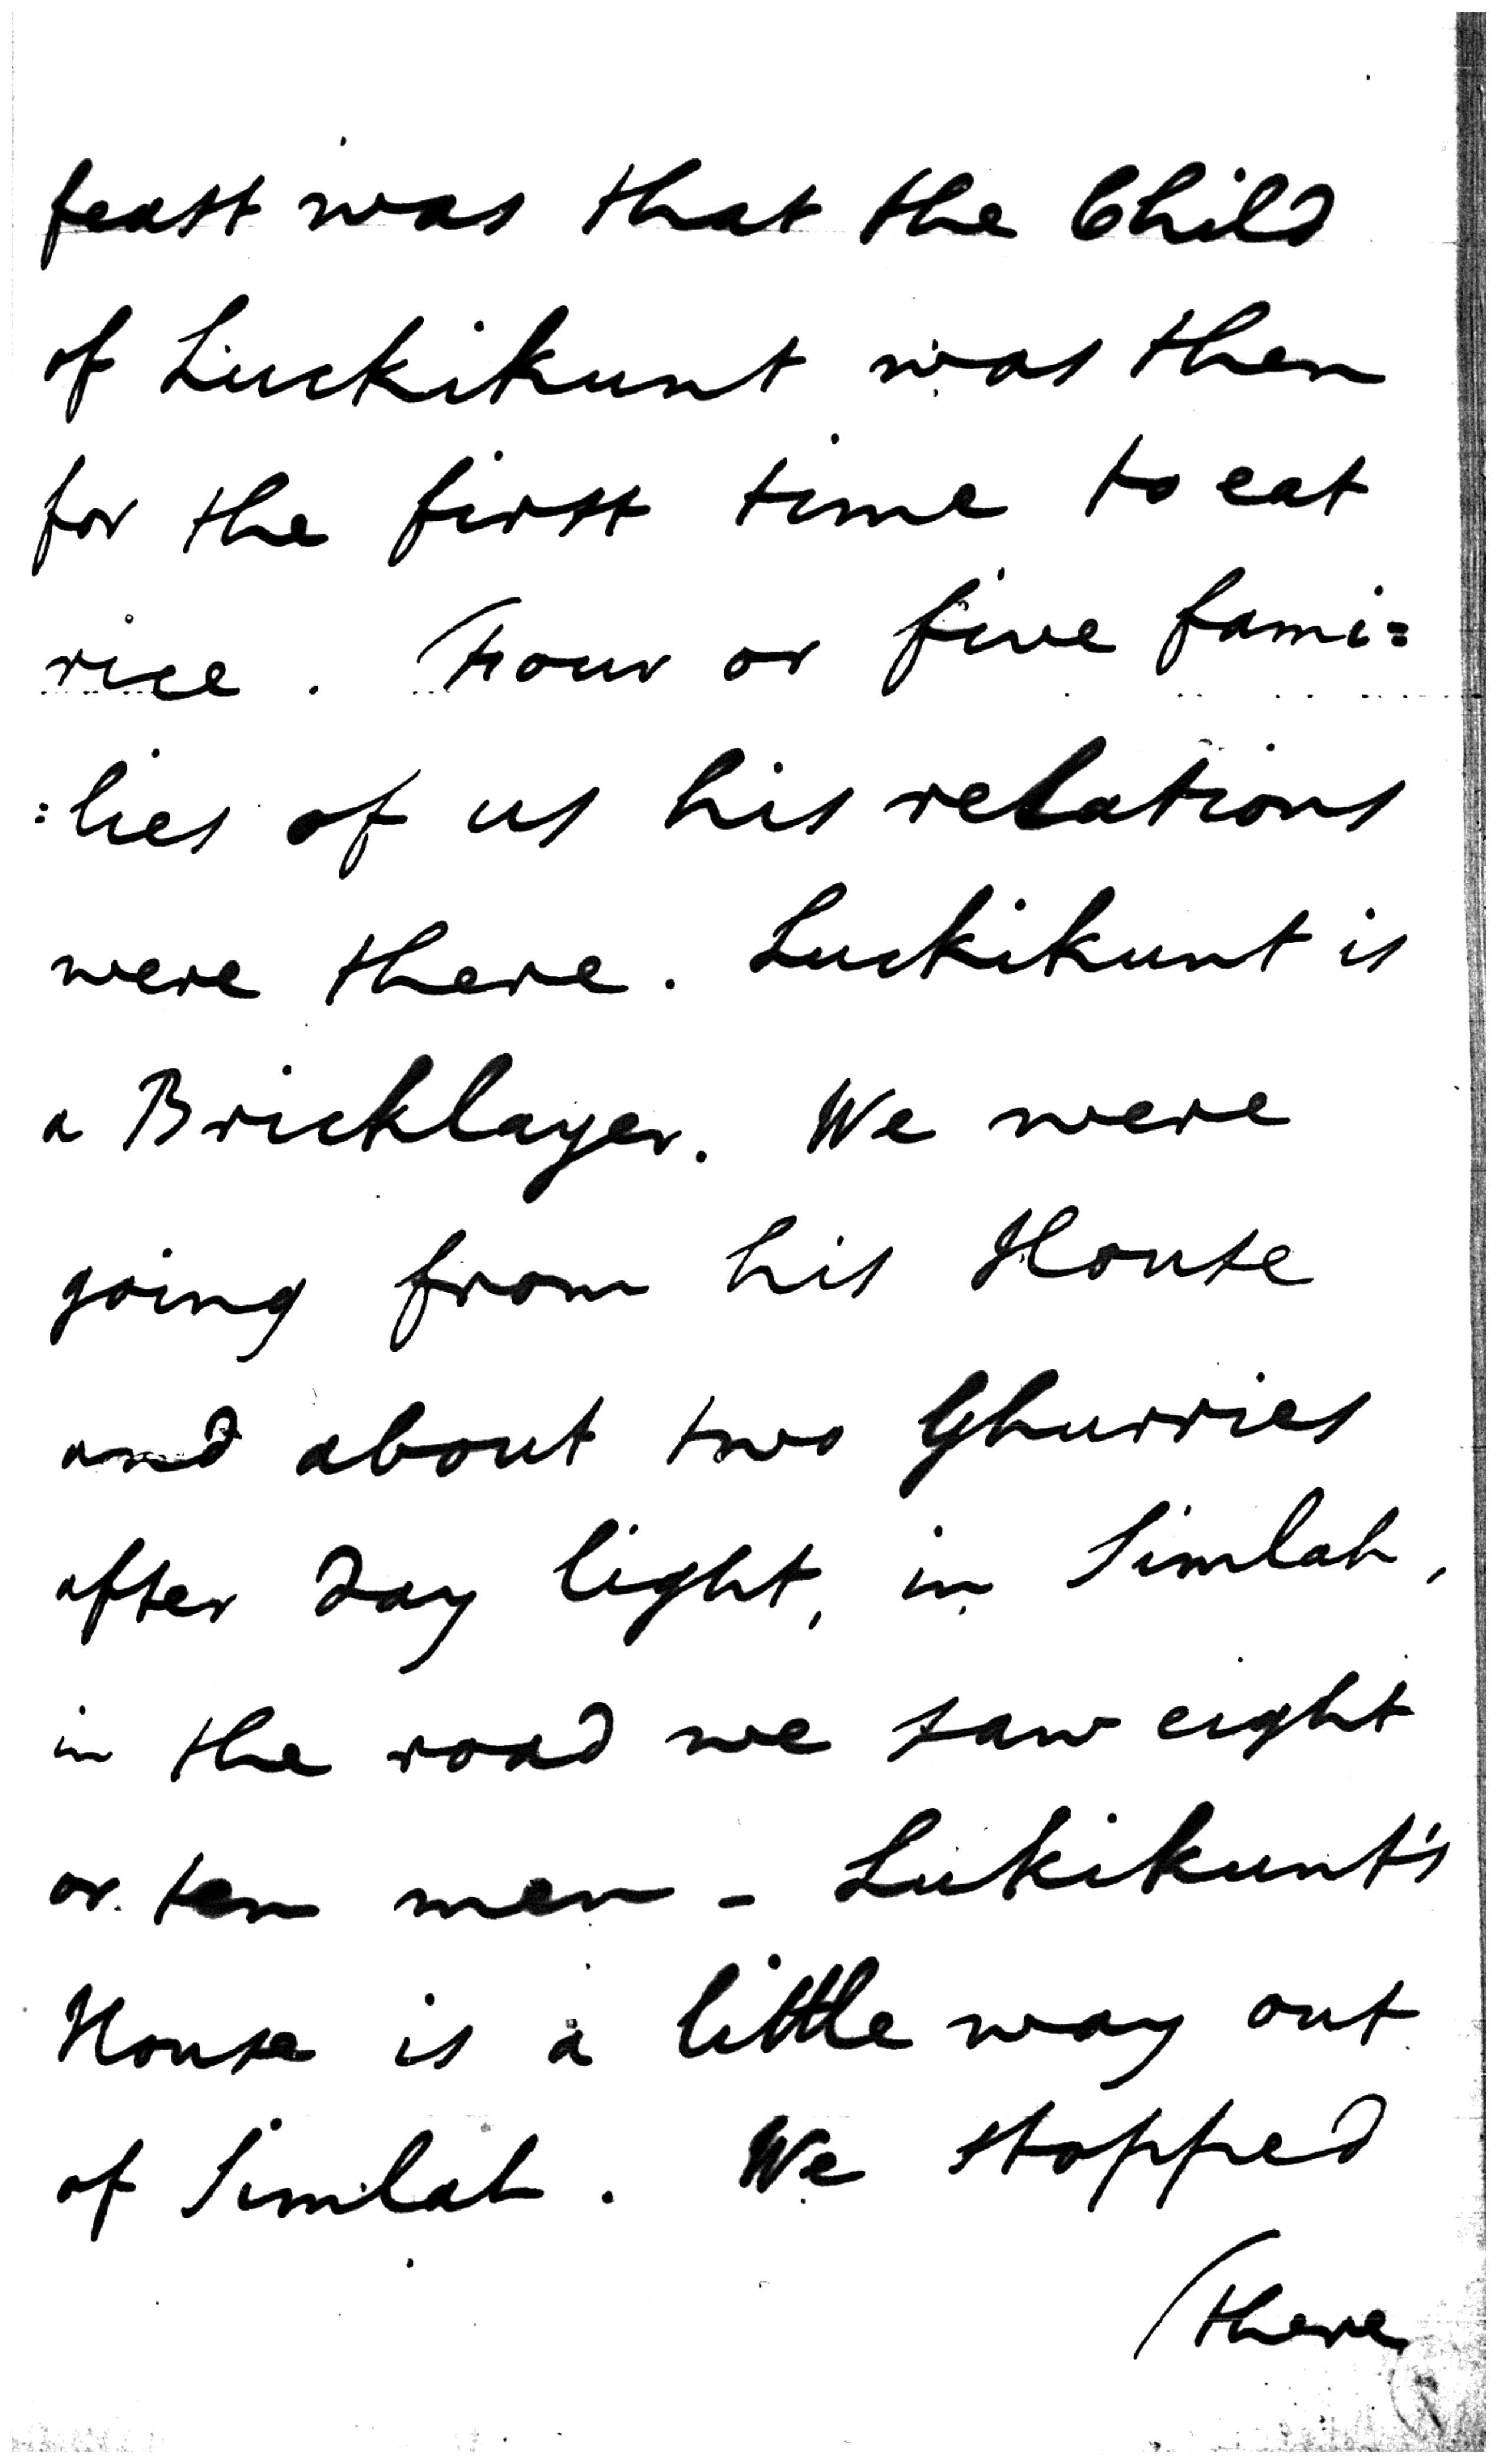 feast was that the Child
of Luckikunt was then
for the first time to eat
rice. Four or five fami=
:lies of us his relations
were there. Luckikunt is
a Bricklayer. We were
going from his House
and about two Ghurries
after Day light, in Simlah,
in the road we saw eight
or ten men - Lukikunt's
House is a little way out
of Simlah. We stopped
(there